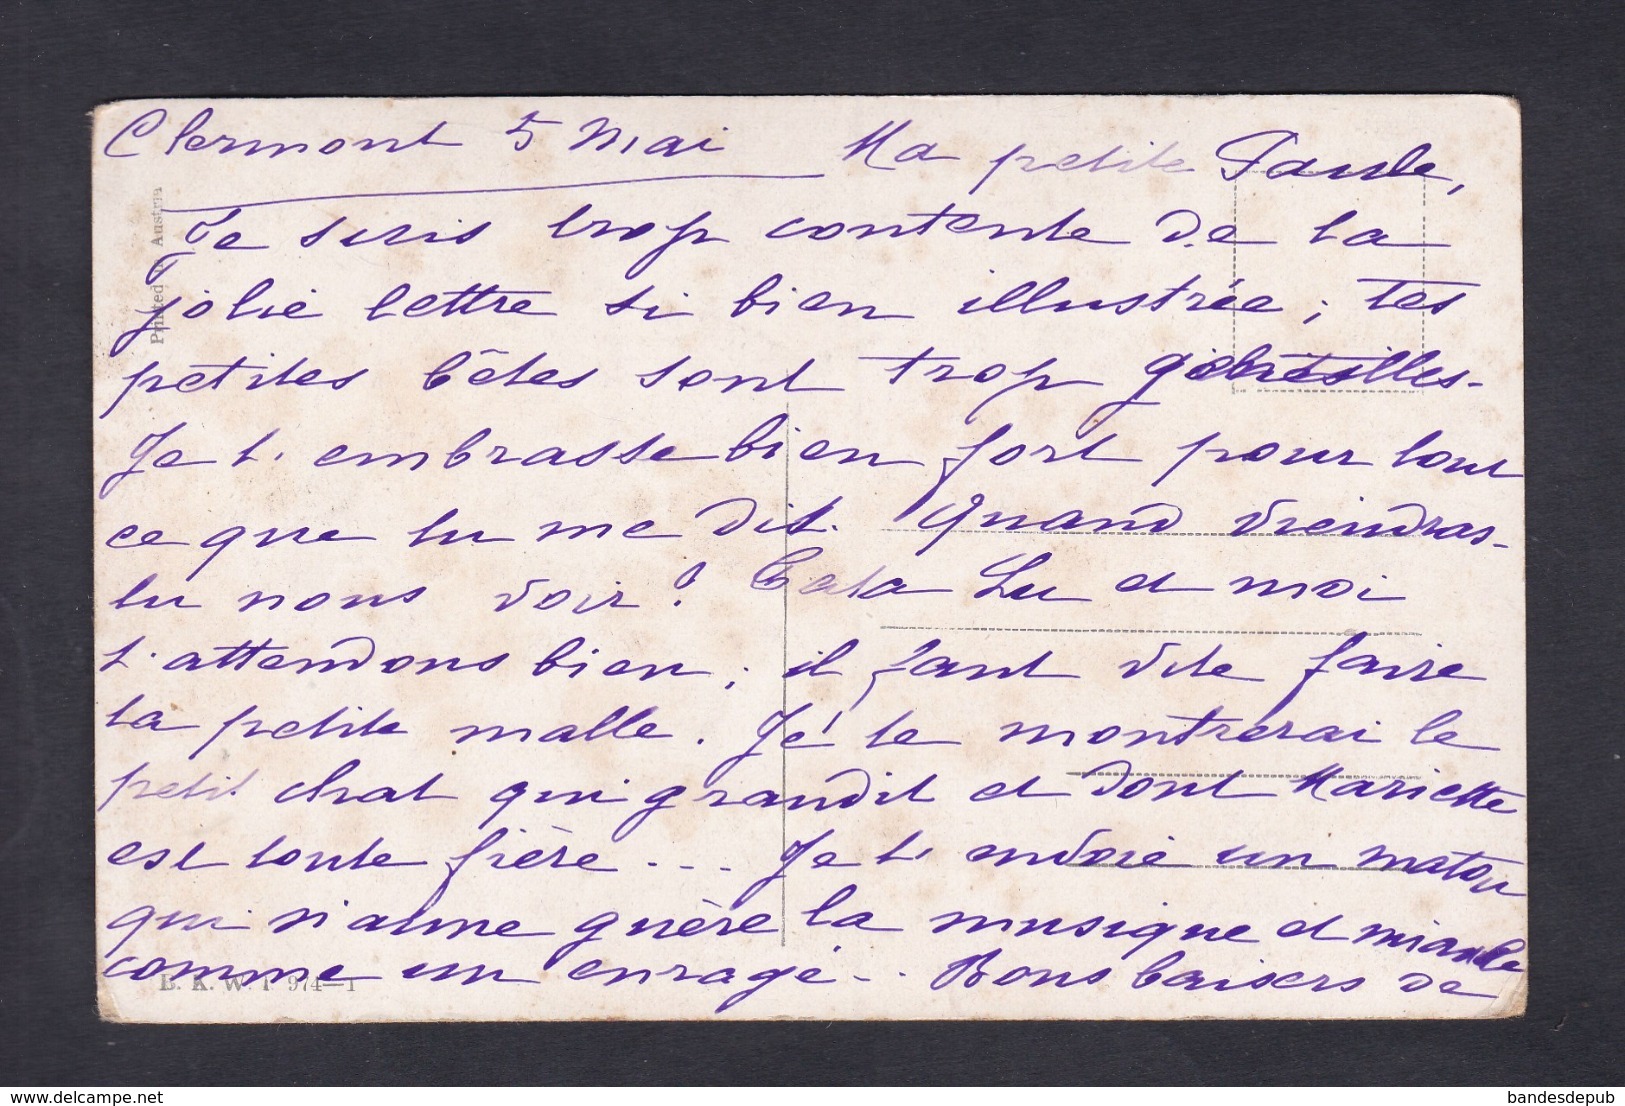 Clermont 5 Mai Ma petite Paule,
Je suis trop contente de la
jolie lettre si bien illustrée ; tes
petites bêtes sont trop
Je t'embrasse bien fort pour tout
ce que tu me dis. Quand viendras-
tu nous voir ? Lu et moi
t'attendons bien ; il faut vite faire
ta petite malle. Je te montrerai le
petit chat qui grandit et dont Mariette
est toute fière... Je t'envoie un matou
qui n'aime guère la musique et miaule
comme un enragé.. Bons baisers de
Printed in Austria
B. K. W. I. 974—1
delcampe.net
bandesdepub